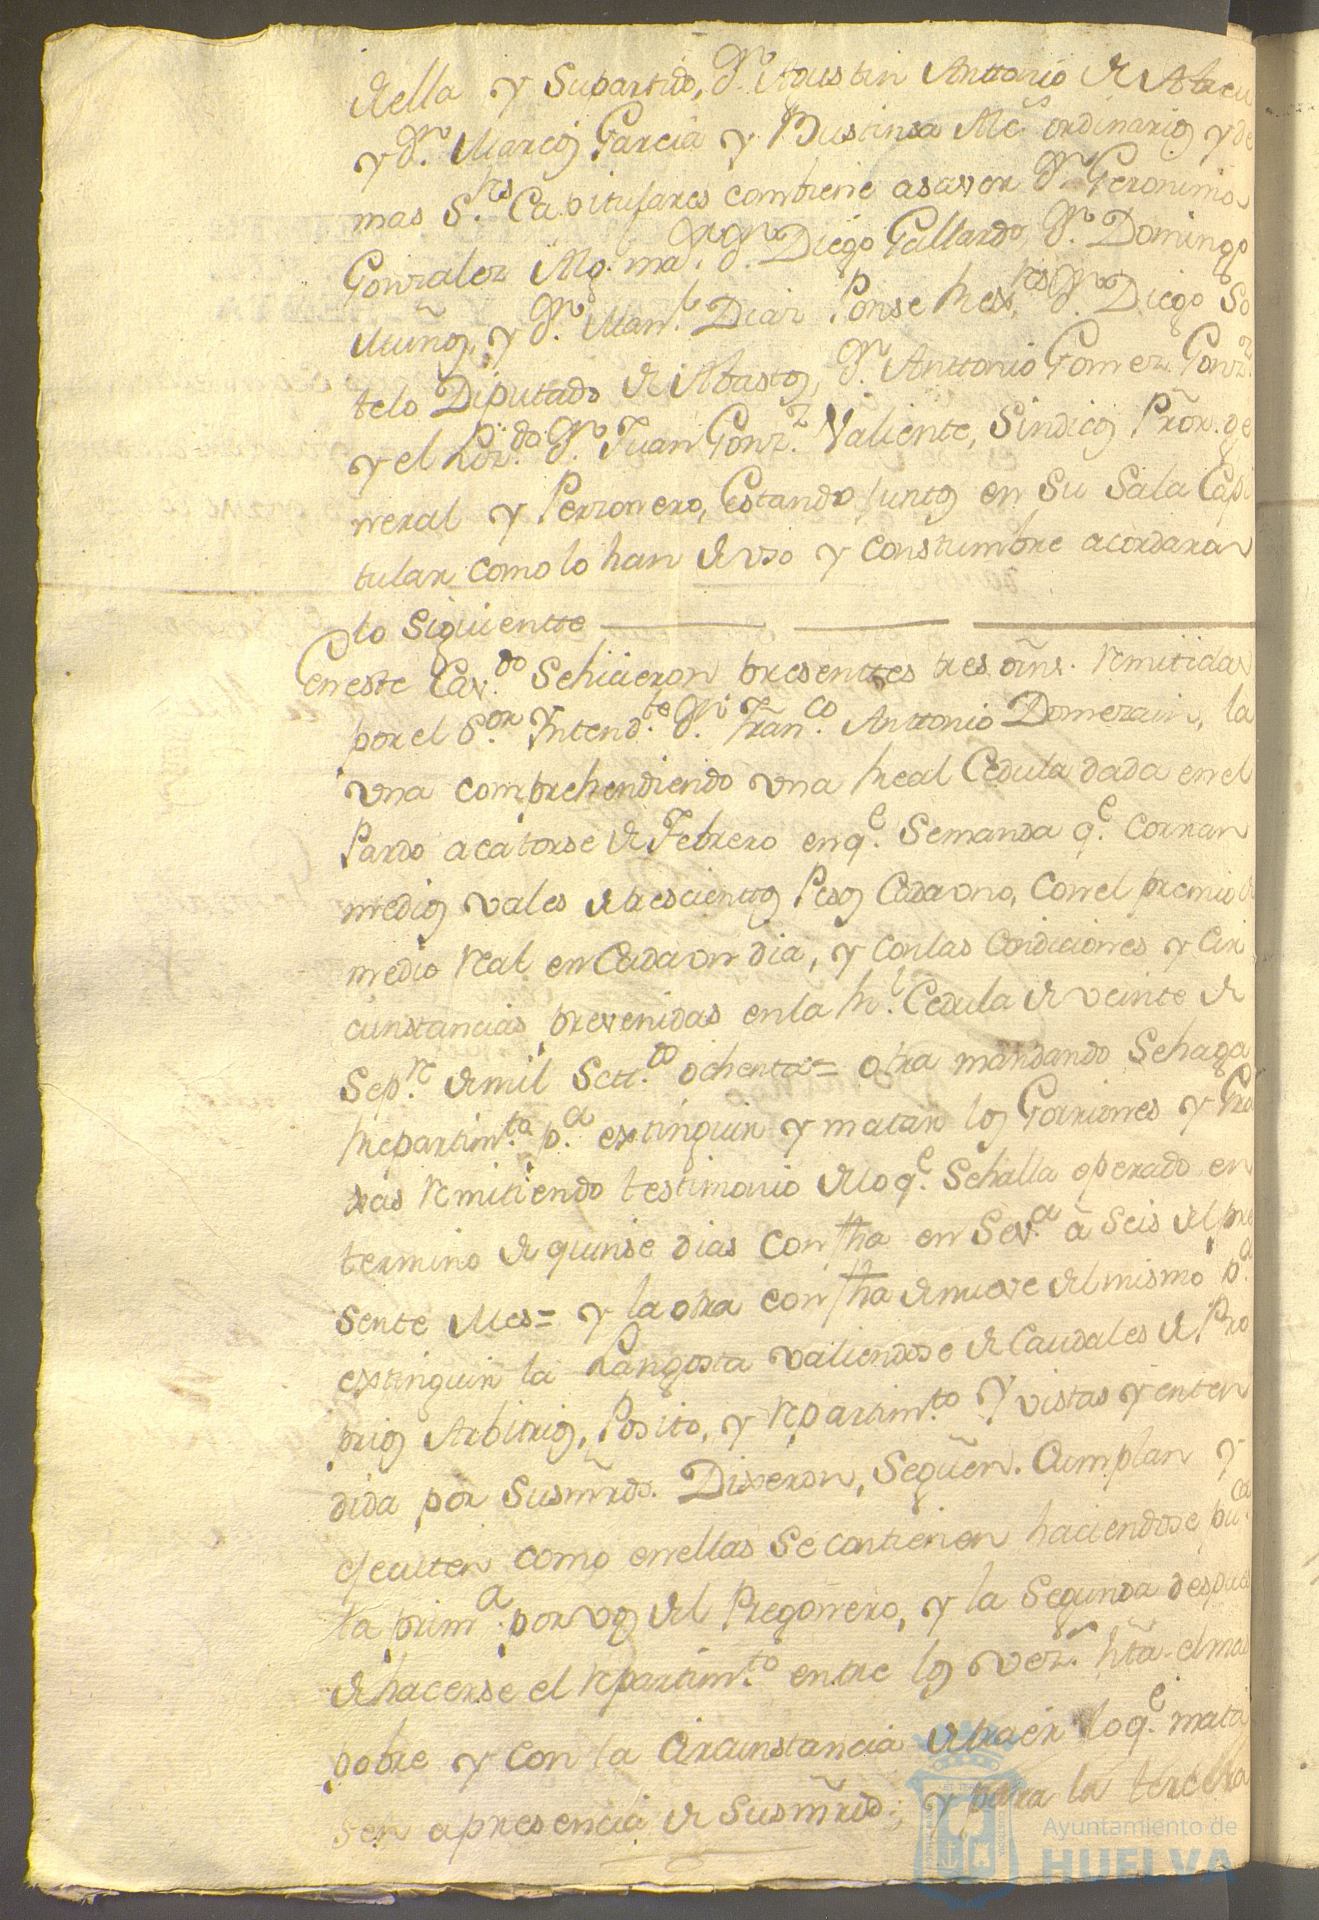 della y Supartido, Dn. Agustin Anttonio de Abreu
y Dn. Marcos Garcia y Bustinsa Alces. ordinarios y de
mas S.res Capitulares combiene asaver Dn. Geronimo
Gonzalez Alg. mar. Dn. Diego Gallardo, Dn. Domingo
Muños, y Dn. Man.l Diaz Ponse Rexs.res Dn. Diego So
telo Diputado de Abastos, Dn. Anttonio Gomez Gonz.z
y el Liz.do Dn. Juan Gonz.z Valiente, Sindicos Prõr. ge
neral y Perzonero, Estando juntos en Su Sala Capi
tular como lo han de vso y constumbre acordaron
lo siguientte
En este Cav.do Sehicieron presenttes tres orñs. remitidas
por el S.or Yntend.te Dn. Fran.co Anttonio Domezain, la
vna comprehendiendo vna Real Cedula dada en el
Pardo acatorse de Febrero en q.e Semanda q.e corran
medios vales de trescientos Pesos Cada vno, con el premio de
medio real en Cada vn dia, y con las Condiciones y Cir
cunstancias prevenidas en la R.l Cedula de veinte de
Sep.re de mil Sett.to ochenta = otra mandando Sehaga
Repartim.to p.a extinguir y matar los Gorriones y Gra
xas remitiendo testimonio de lo q.e Sehalla operado en
termino de quinse dias con fha en Sev.a a Seis del pre
sente Mes = y la otra con fha de nueve del mismo p.a
extinguir la Langosta valiendose de Caudales de Pro
prios Arbitrios, Posito, y repartim.to Y vistas y enten
dida por Susmrds. Dixeron, Seguen. Cumplan y
ejecuten como en ellas Se contienen haciendose pu.ca
la prim.a por vos del Pregonero, y la Segunda despues
de hacerse el repartim.to entre los vez.s hta. el mas
pobre y con la Circunstancia de traer lo q.e mata
sen apresencia de Susmrds; y para la tercera
Ayuntamiento de
HUELVA